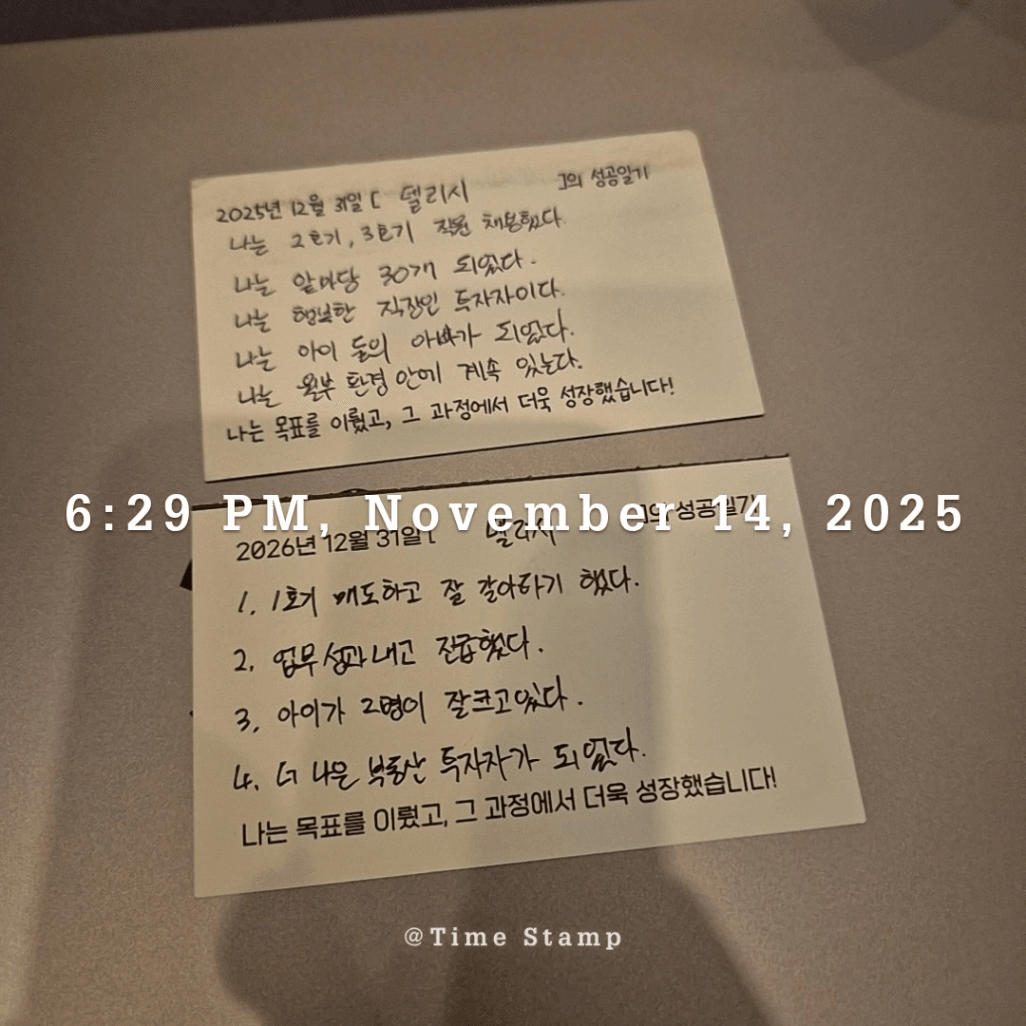 2025년 12월 31일 [ 델리시 ]의 성공일기
나는 2호기, 3호기 직원 채용했다.
나는 앞마당 30개 되었다.
나는 행복한 직장인 투자자이다.
나는 아이 둘의 아빠가 되었다.
나는 월부 환경 안에 계속 있는다.
나는 목표를 이뤘고, 그 과정에서 더욱 성장했습니다!
6:29 PM, November 14, 2025
2026년 12월 31일 [ 델리시 ]의 성공일기
1. 1호기 매도하고 잘 갈아타기 했다.
2. 업무 성과 내고 진급했다.
3. 아이가 2명이 잘크고있다.
4. 더 나은 부동산 투자자가 되었다.
나는 목표를 이뤘고, 그 과정에서 더욱 성장했습니다!
@Time Stamp